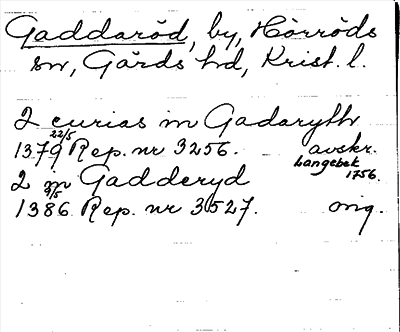 Gaddaröd, by, Hörröds
sn, Gärds hd, Krist. l.
2 curias in Gadaryth
1379 22/5 Rep. nr 3256. avskr.
Langebek
1756.
2 in Gadderyd
1386 9/5 Rep. nr 3527. orig.